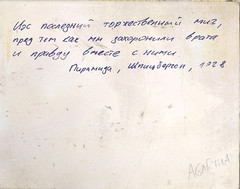 Наш последний торжественный миг,
пред тем как мы захоронили врата
и правду вместе с ними
Пирамида, Шпицберген, 1928